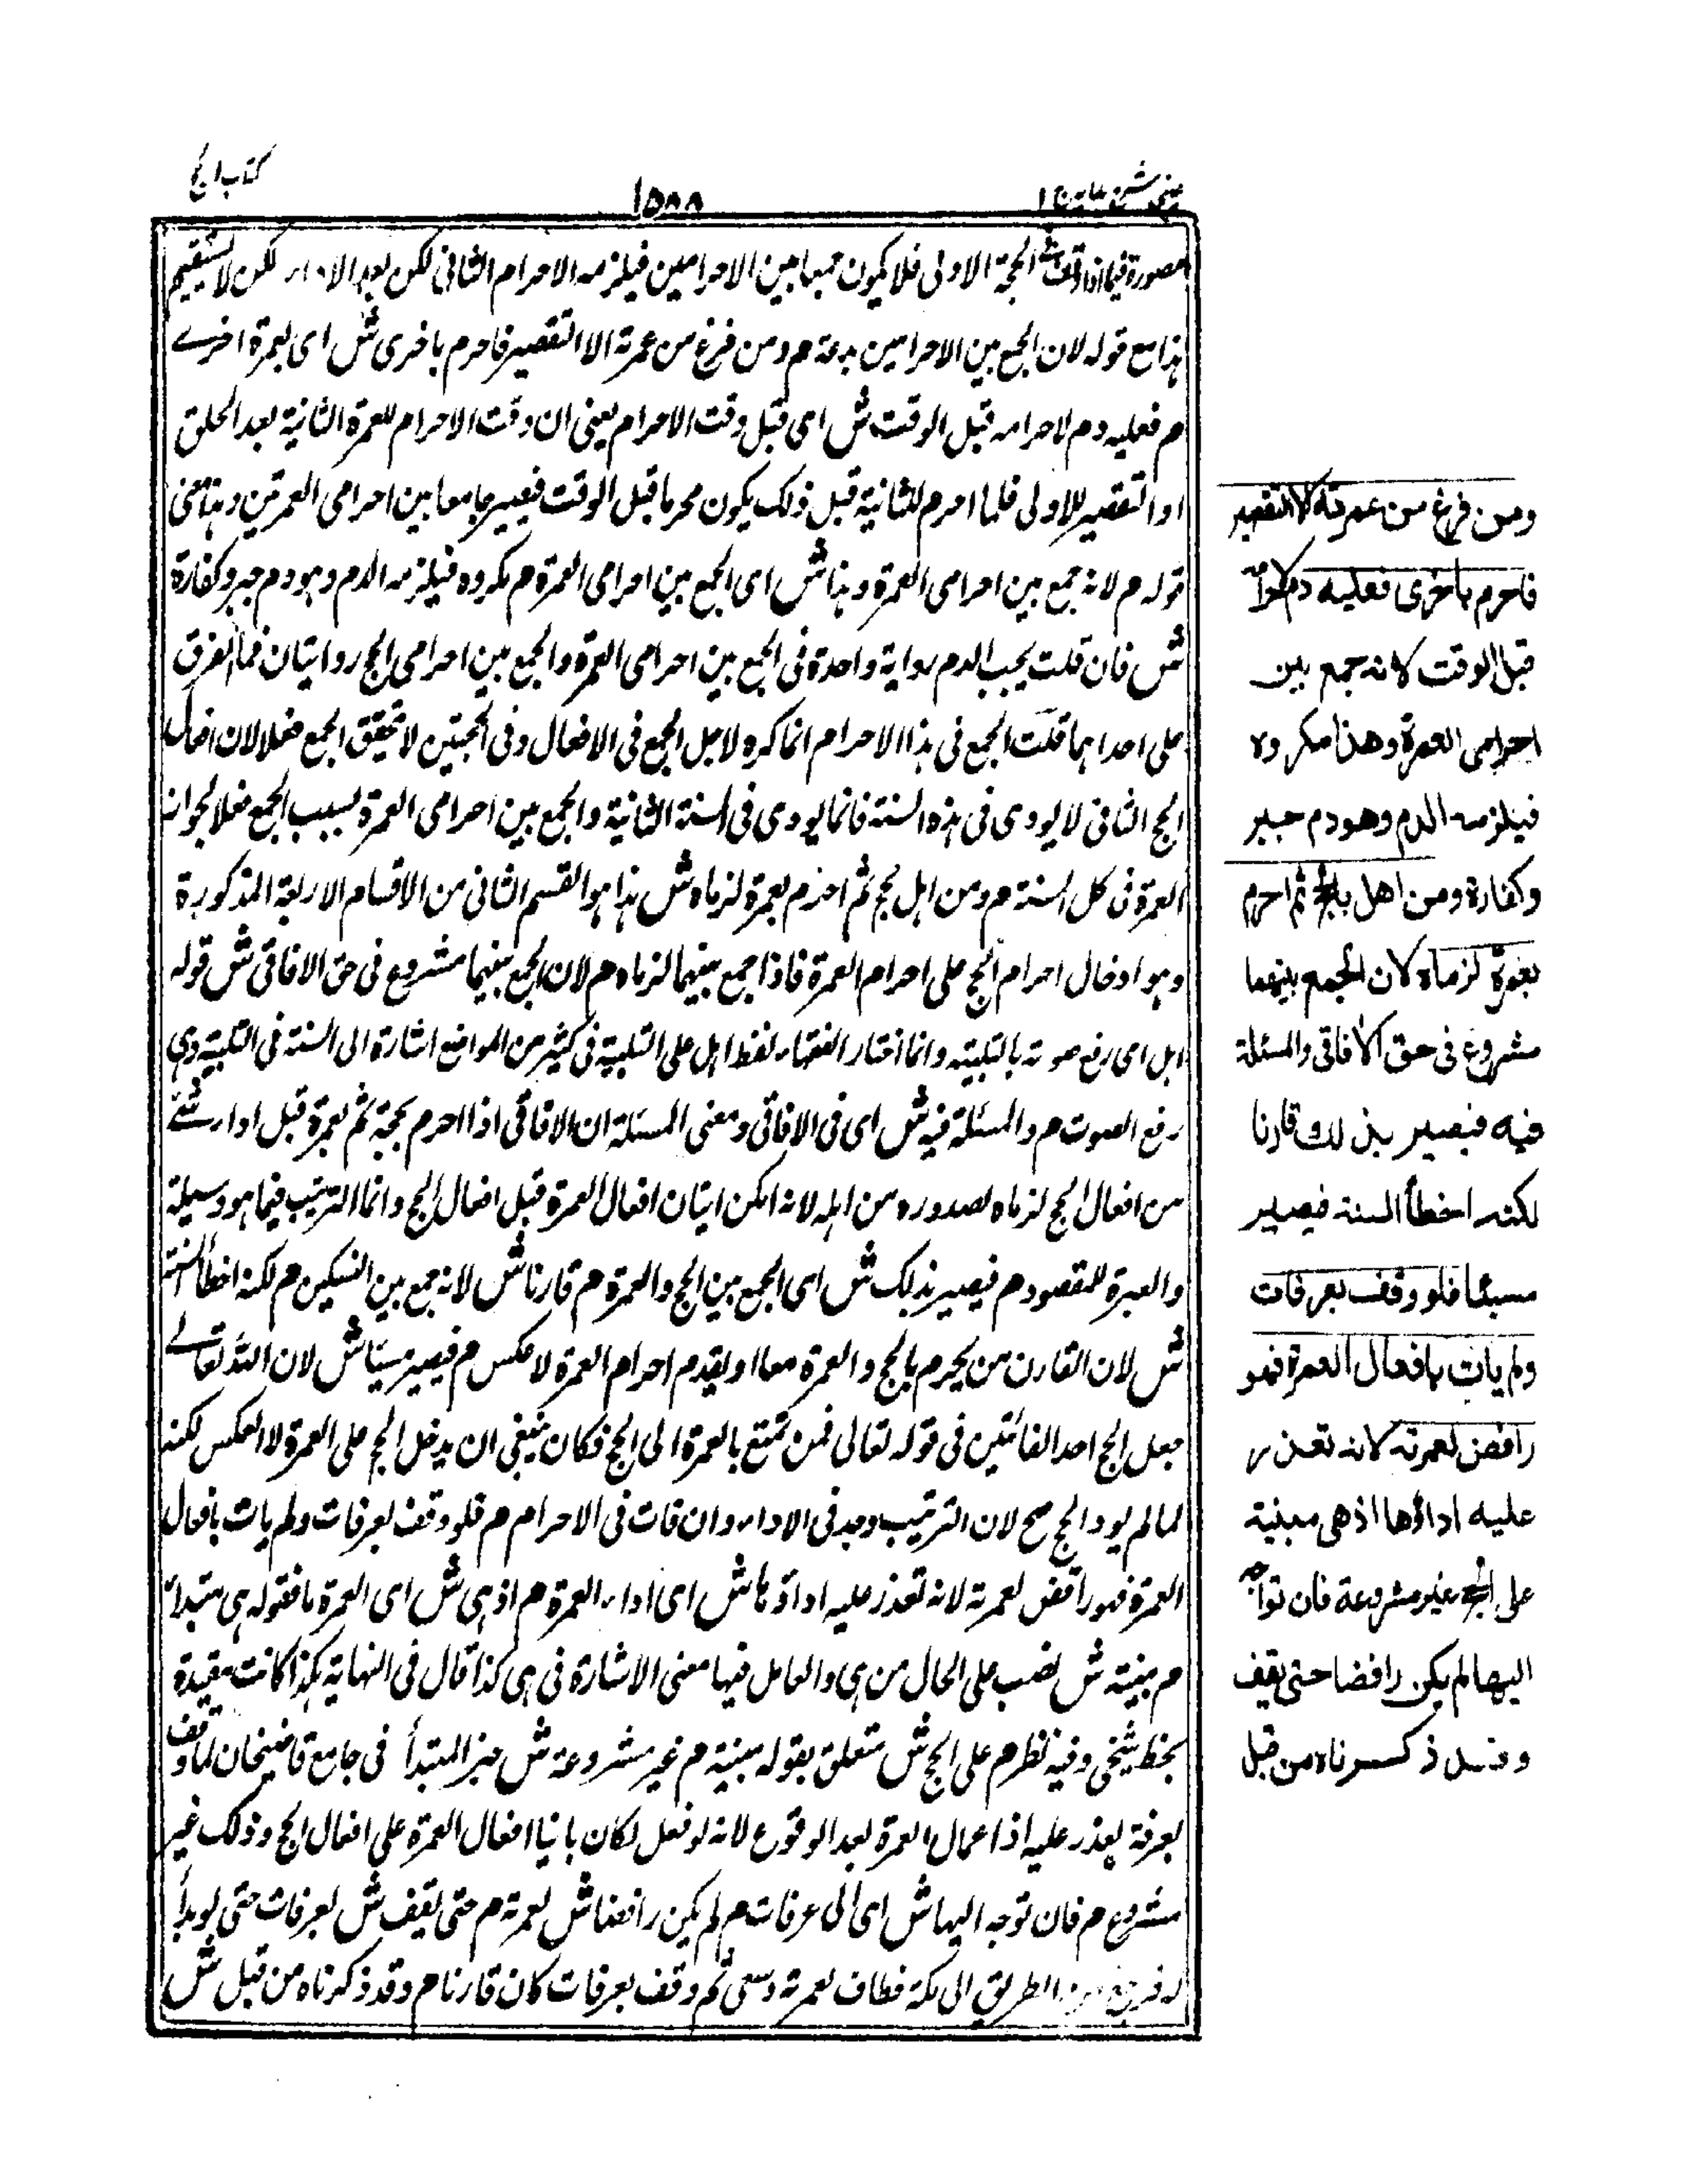 كتاب الحج
١٥٨٨
عينى شرح هدايه
مصورة فيما اذا فاتت الحجة الاولى فلا يكون جمعا بين الاحرامين فيلزمه الاحرام الثانى لكن بعد الاداء لكن لا يستقيم
هذا مع قوله لان الجمع بين الاحرامين بدعة م ومن فرغ من عمرته الا التقصير فاحرم باخرى ش اى بعمرة اخرى
م فعليه دم لاحرامه قبل الوقت ش اى قبل وقت الاحرام يعنى ان وقت الاحرام للعمرة الثانية بعد الحلق
او التقصير للاولى فلما احرم للثانية قبل ذلك يكون محرما قبل الوقت فيصير جامعا بين احرامى العمرتين وهذا معنى
قوله م لانه جمع بين احرامى العمرة وهذا ش اى الجمع بين احرامى العمرة م مكروه فيلزمه الدم وهو دم جبر وكفارة
ش فان قلت يجب الدم رواية واحدة فى الجمع بين احرامى العمرة والجمع بين احرامى الحج روايتان فما الفرق
على احداهما قلت الجمع فى هذا الاحرام انما كره لاجل الجمع فى الافعال وفى الحجتين لا يتحقق الجمع فعلا لان افعال
الحج الثانى لا يودى فى هذه السنة فانما يودى فى السنة الثانية والجمع بين احرامى العمرة بسبب الجمع فعلا لجواز
العمرة فى كل السنة م ومن اهل بحج ثم احرم بعمرة لزماه ش هذا هو القسم الثانى من الاقسام الاربعة المذكورة
وهو ادخال احرام الحج على احرام العمرة فاذا جمع بينهما لزماه م لان الجمع بينهما مشروع فى حق الافاقى ش قوله
اهل اى رفع صوته بالتلبيته وانما اختار الفقهاء لفظ اهل على التلبية فى كثير من المواضع اشارة الى السنة فى التلبية وهى
رفع الصوت م والمسئلة فيه ش اى فى الافاقى ومعنى المسئلة ان الافاقى اذا احرم بحجة ثم بعمرة قبل اداء شئ
من افعال الحج لزماه لصدوره من اهله لانه امكن اتيان افعال العمرة قبل افعال الحج وانما الترتيب فيما هو وسيلة
والعبرة للمقصود م فيصير بذلك ش اى الجمع بين الحج والعمرة م قارنا ش لانه جمع بين النسكين م لكنه اخطأ السنة
ش لان القارن من يحرم بالحج والعمرة معا او يقدم احرام العمرة لا عكس م فيصير مسيئا ش لان الله تعالى
جعل الحج احد الغائتين فى قوله تعالى فمن تمتع بالعمرة الى الحج فكان ينبغى ان يدخل الحج على العمرة لا العكس لكنه
لما لم يود الحج صح لان الترتيب وجد فى الاداء وان فات فى الاحرام م فلو وقف بعرفات ولم يات بافعال
العمرة فهو رافض لعمرته لانه تعذر عليه اداؤها ش اى اداء العمرة م اذ هى ش اى العمرة ما فقوله هى مبتدأ
م مبنية ش نصب على الحال من هى والعامل فيها معنى الاشارة فى هى كذا قال فى النهاية هكذا كانت مقيدة
بخط شيخى وفيه نظر م على الحج ش متعلق بقوله مبنية م غير مشروعة ش خبر المبتدأ فى جامع قاضيخان لما وقف
بعرفة يعذر عليه اذا اعمال العمرة بعد الوقوع لانه لو فعل لكان بانيا افعال العمرة على افعال الحج وذلك غير
مشروع م فان توجه اليها ش اى الى عرفات م لم يكن رافضا ش لعمرته م حتى يقف ش بعرفات حتى لو بدأ
له فرجع من الطريق الى مكة فطاف لعمرته وسعى ثم وقف بعرفات كان قارنا م وقد ذكرناه من قبل ش
ومن فرغ من عمرته الا التقصير
فاحرم باخرى فعليه دم لاحرامه
قبل الوقت لانه جمع بين
احرامى العمرة وهذا مكروه
فيلزمه الدم وهو دم جبر
وكفارة ومن اهل بالحج ثم احرم
بعمرة لزماه لان الجمع بينهما
مشروع فى حق الافاقى والمسئلة
فيه فيصير بذلك قارنا
لكنه اخطأ السنة فيصير
مسيئا فلو وقف بعرفات
ولم يات بافعال العمرة فهو
رافض لعمرته لانه تعذر
عليه اداؤها اذ هى مبنية
على الحج غير مشروعة فان توجه
اليها لم يكن رافضا حتى يقف
وقد ذكرناه من قبل